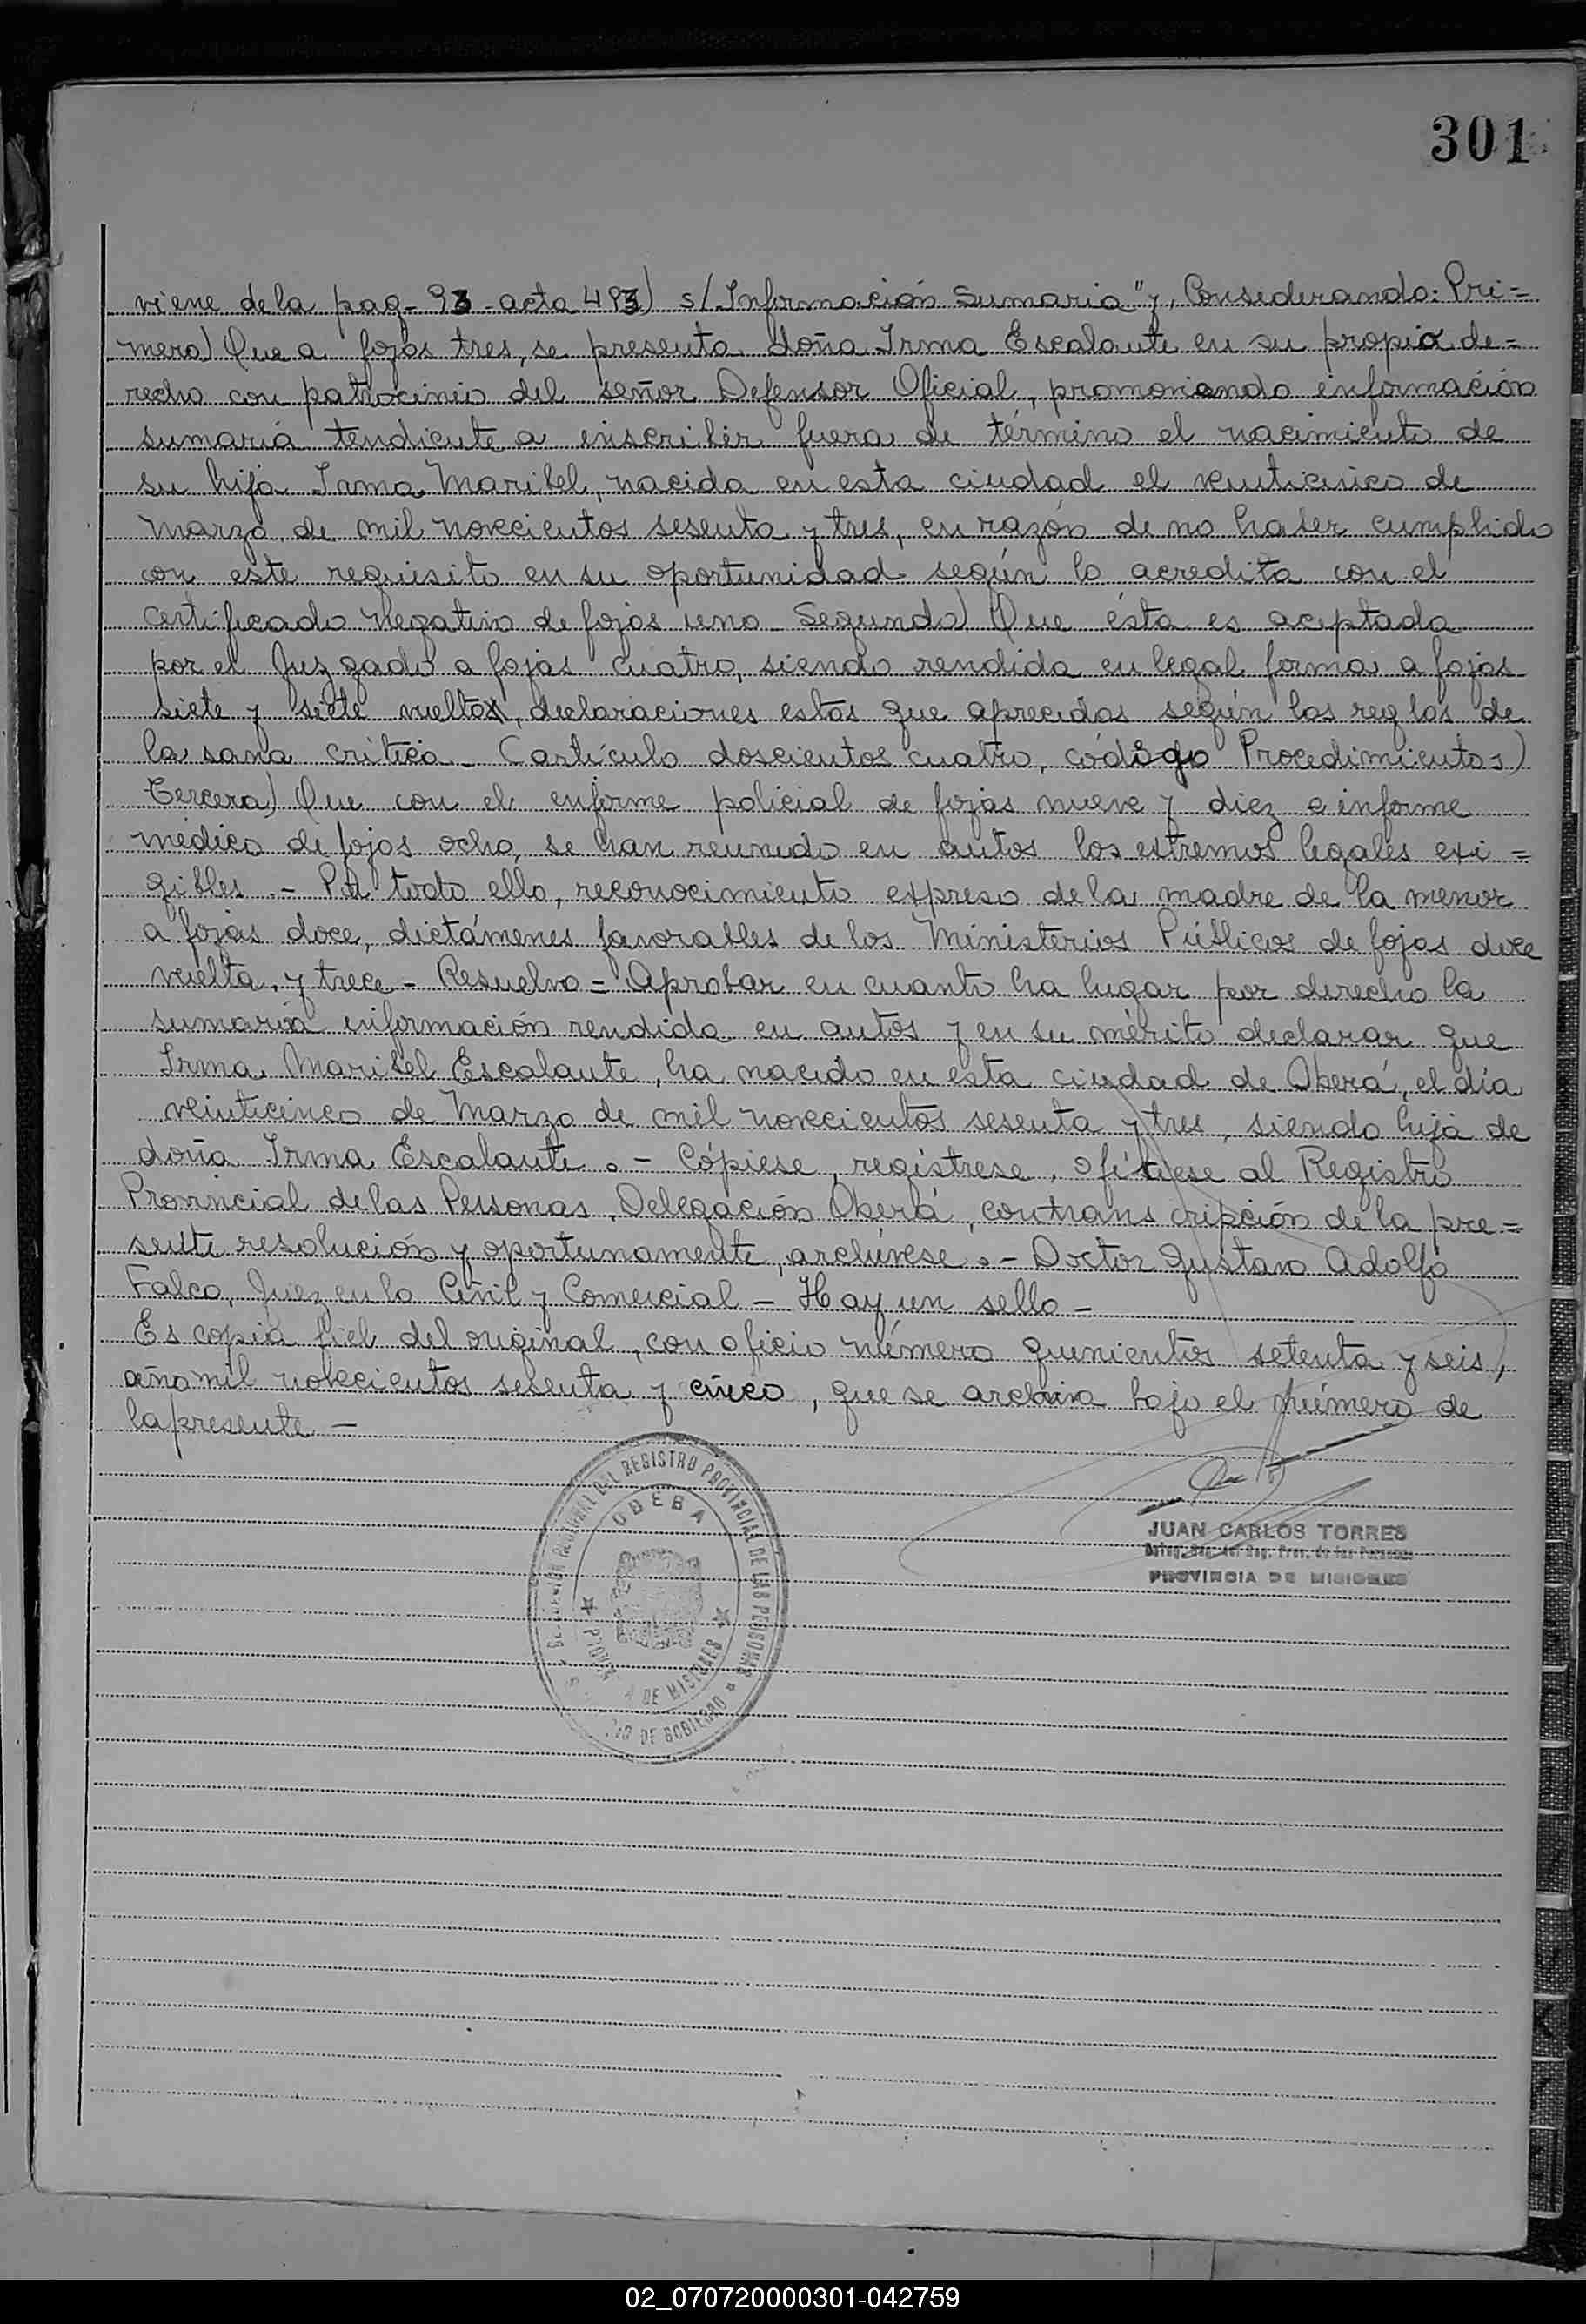 301
viene de la pag- 93 - acta 493) s/ Información Sumaria" y, Consederando: Pri=
mero) Que a fojas tres, se presenta doña Irma Escalante en su propio de=
recho con patrocinio del señor Defensor Oficial, promoviendo información
sumaria tendiente a inscribir fuera de término el nacimiento de
su hija Irma Maribel, nacida en esta ciudad el veinticinco de
Marzo de mil novecientos sesenta y tres, en razón de no haber cumplido
con este requisito en su oportunidad según lo acredita con el
certificado negativo de fojas uno - Segundo) Que ésta es aceptada
por el Juzgado a fojas cuatro, siendo rendida en legal forma a fojas
siete y siete vuelta, declaraciones estas que apreciadas según las reglas de
la sana crítica - (artículo doscientos cuatro, código Procedimientos)
Tercero) Que con el informe policial de fojas nueve y diez e informe
médico de fojas ocho, se han reunido en autos los extremos legales exi=
gibles .- Por todo ello, reconocimiento expreso de la madre de la menor
a fojas doce, dictámenes favorables de los Ministerios Públicos de fojas doce
vuelta, y trece - Resuelvo = Aprobar en cuanto ha lugar por derecho la
sumaria información rendida en autos y en su mérito declarar que
Irma Maribel Escalante, ha nacido en esta ciudad de Oberá, el día
veinticinco de Marzo de mil novecientos sesenta y tres, siendo hija de
doña Irma Escalante .- Cópiese, regístrese, ofíciese al Registro
Provincial de las Personas, Delegación Oberá, con transcripción de la pre=
sente resolución y oportunamente, archívese .- Doctor Gustavo Adolfo
Falco, Juez en lo Civil y Comercial - Hay un sello -
Es copia fiel del original, con oficio número quinientos setenta y seis,
año mil novecientos sesenta y cinco, que se archiva bajo el número de
la presente -
REGIONAL DEL REGISTRO PROVINCIAL DE LAS PERSONAS
OBERA
DE MISIONES
DE GOBIERNO
JUAN CARLOS TORRES
Deleg. Reg. del Reg. Prov. de las Personas
PROVINCIA DE MISIONES
02_070720000301-042759